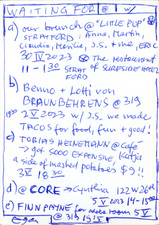 WAITING FOR @ W
a) our brunch @ "LITTLE PUP"
STRATFORD: Anna, Martin,
Claudia, Merike, J.S. + the ERIC
30 IV 2023 @ The restaurant
11 - 1:30 scene of SURFSIDE HOTEL
FORD
b) Benno + Lotti von
BRAUN BEHRENS @ 319
2 V 2023 w/ J.S. we made
TACOS for food, fun + good!
c) TOBIAS HEINEMANN @ CAFÉ
→ got SOOO EXPENSIVE Katja
a side of mashed potatoes $9!!
3 V 18 30
d) @ CORE → Cynthia 122 W 26th
5 V 2023 14-15 00
e) FINN PAYNE for more room 5 V
@ 319 15 15